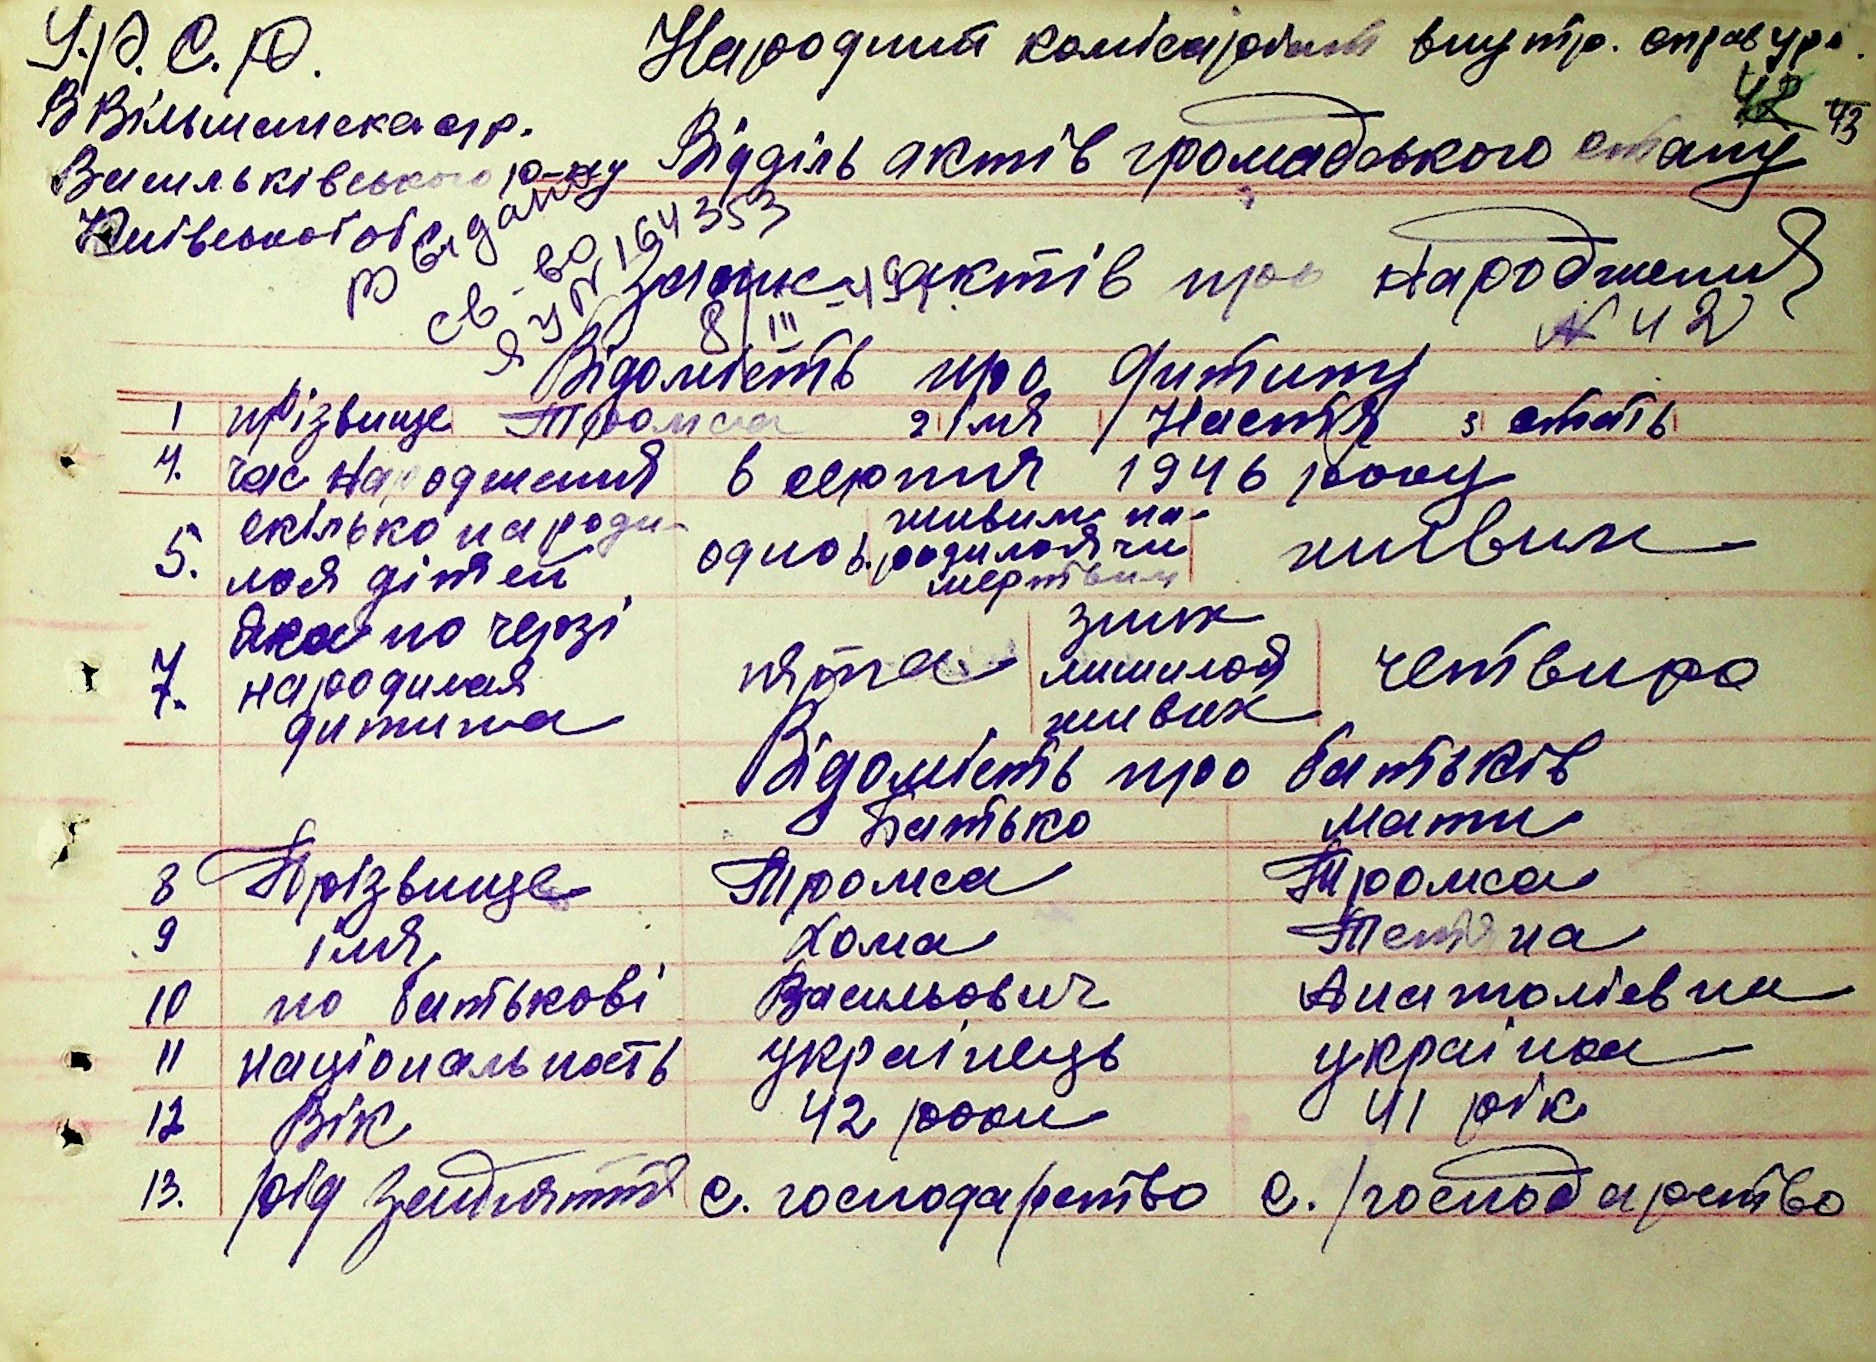 У.Р.С.Р. Народний комісаріат внутр. справ УРС.
42 43
В Вільшанська с/р.
Відділь актів громадського стану
Васильківського р-ну
Київської обл
видано
св-во
Я УР № 164353
8/III -49
Запис актів про народження
№ 42
Відомість про дитину
1 прізвище Тромса 2 імя Настя 3 стать
4. час народження 6 серпня 1946 року
5. скілько народи-
лося дітей одно живим на-
родилося чи
мертвим живим
7. Яка по черзі
народилася
дитина пята з них
лишилося
живих четверо
Відомість про батьків
Батько мати
8 Прізвище Тромса Тромса
9 імя Хома Тетяна
10 по батькові Васильович Анатоліевна
11 національность українець українка
12 Вік 42 роки 41 рік
13. рід заняття с. господарство с. господарство